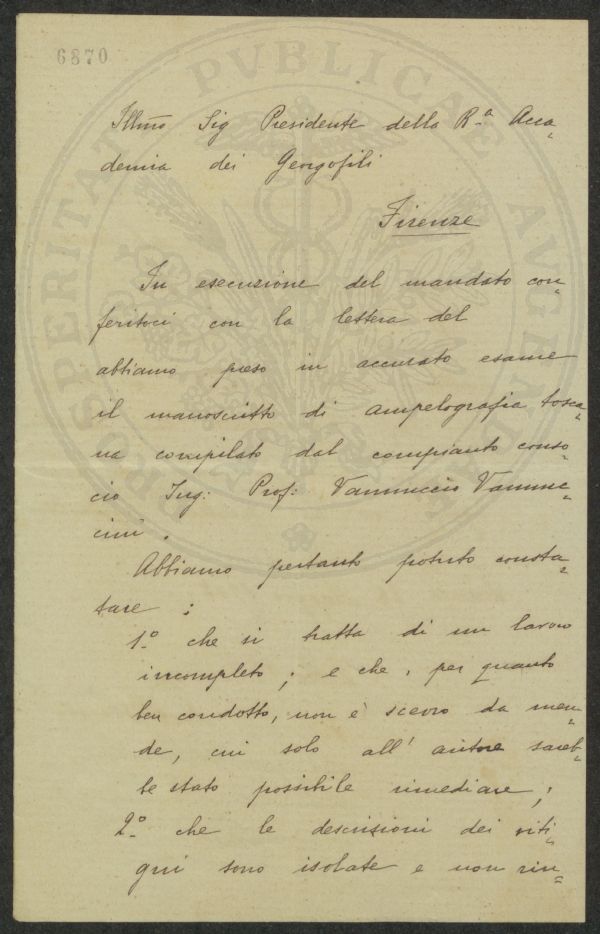 6870
Illmo Sig Presidente della R.a Acca=
demia dei Georgofili
Firenze
In esecuzione del mandato con=
feritoci con la lettera del
abbiamo preso in accurato esame
il manoscritto di ampelografia tosca=
na compilato dal compianto conso=
cio Ing: Prof: Vannuccio Vannuc=
cini.
Abbiamo pertanto potuto consta=
tare:
1.o che si tratta di un lavoro
incompleto; e che, per quanto
ben condotto, non è scevro da men=
de, cui solo all'autore sareb=
be stato possibile rimediare;
2.o che le descrizioni dei viti=
gni sono isolate e non riu=
PROSPERITATI PVBLICAE AVGENDAE